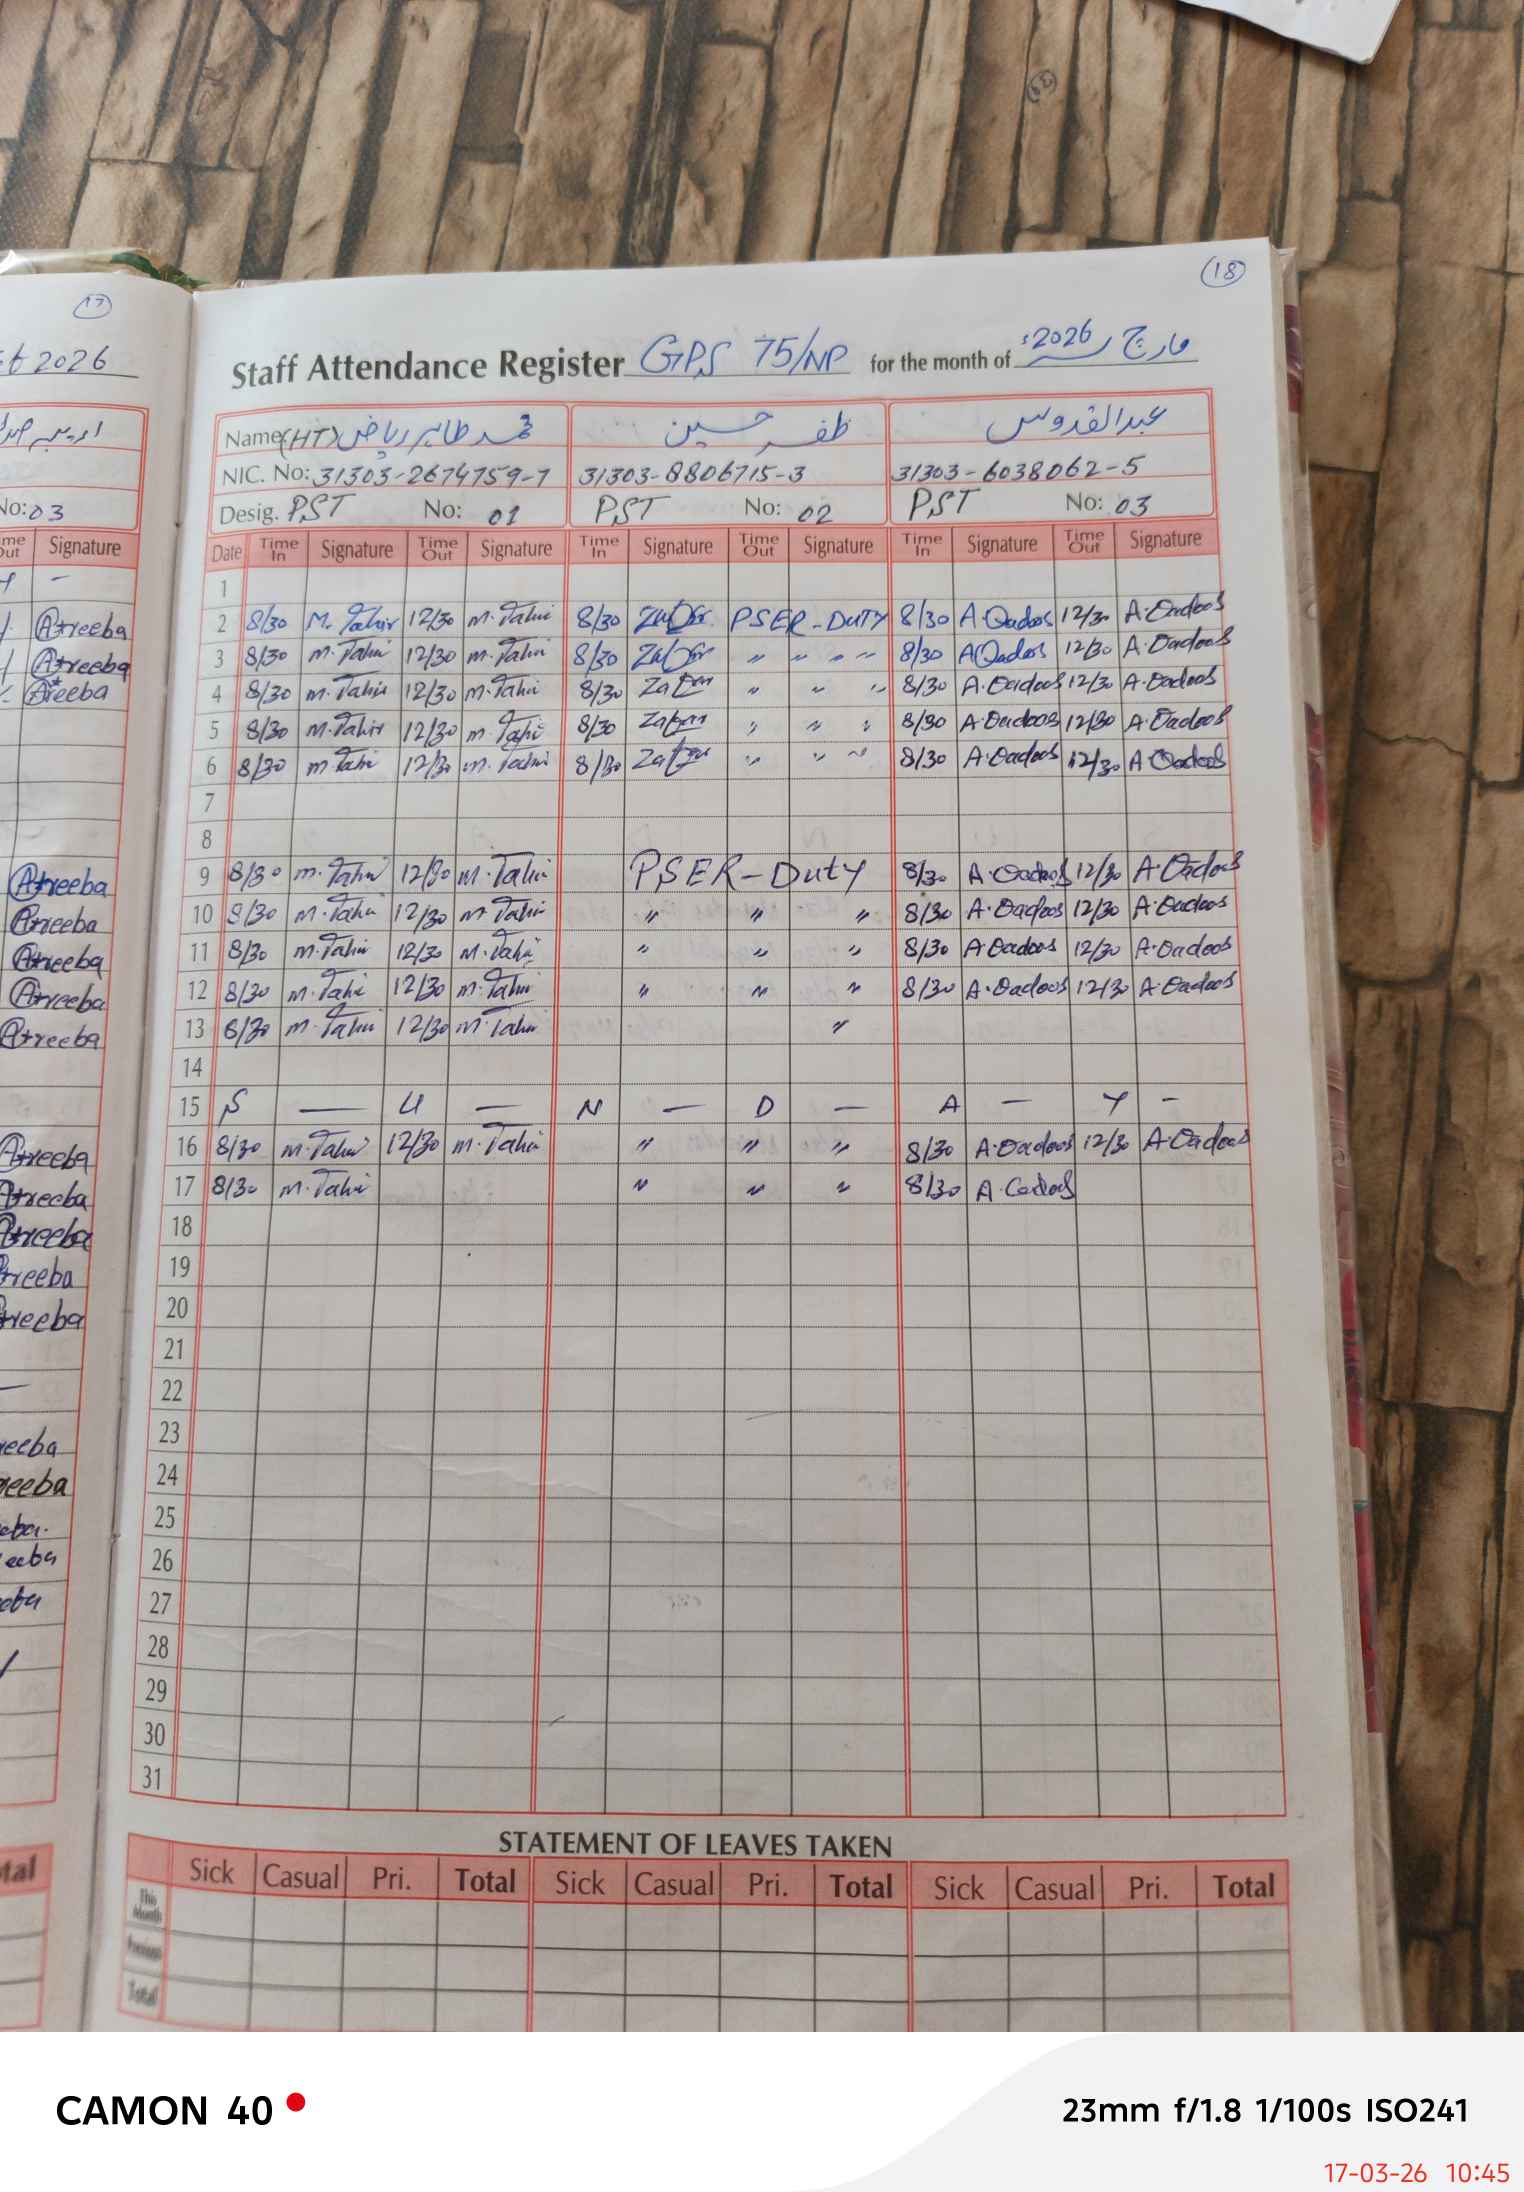 17
18
2026
Staff Attendance Register GPS 75/NP for the month of مارچ 2026ء
Name (HT) محمد طاہر ریاض ظفر حسین عبدالقدوس
NIC. No: 31303-2674759-7 31303-8806715-3 31303-6038062-5
Desig. PST No: 01 PST No: 02 PST No: 03
No: 03
Date Time In Signature Time Out Signature Time In Signature Time Out Signature Time In Signature Time Out Signature
Signature
1
2 8/30 M. Tahir 12/30 M. Tahir 8/30 Zafar PSER-DUTY 8/30 A.Qadoos 12/30 A.Qadoos
Atreeba
3 8/30 M. Tahir 12/30 M. Tahir 8/30 Zafar " " " " 8/30 A Qadoos 12/30 A.Qadoos
Atreeba
4 8/30 M. Tahir 12/30 M. Tahir 8/30 Zafar " " " 8/30 A.Qadoos 12/30 A.Qadoos
Atreeba
5 8/30 M. Tahir 12/30 M. Tahir 8/30 Zafar " " " 8/30 A.Qadoos 12/30 A.Qadoos
6 8/30 M. Tahir 12/30 M. Tahir 8/30 Zafar " " " 8/30 A.Qadoos 12/30 A.Qadoos
7
8
9 8/30 M. Tahir 12/30 M. Tahir PSER-Duty 8/30 A.Qadoos 12/30 A.Qadoos
Atreeba
10 8/30 M. Tahir 12/30 M. Tahir " " " 8/30 A.Qadoos 12/30 A.Qadoos
Atreeba
11 8/30 M. Tahir 12/30 M. Tahir " " " 8/30 A.Qadoos 12/30 A.Qadoos
Atreeba
12 8/30 M. Tahir 12/30 M. Tahir " " " 8/30 A.Qadoos 12/30 A.Qadoos
Atreeba
13 8/30 M. Tahir 12/30 M. Tahir "
Atreeba
14
15 S — U — N — D — A — Y -
16 8/30 M. Tahir 12/30 M. Tahir " " " 8/30 A.Qadoos 12/30 A.Qadoos
Atreeba
17 8/30 M. Tahir " " " 8/30 A.Qadoos
Atreeba
18
Atreeba
19
20
21
22
23
24
25
26
27
28
29
30
31
STATEMENT OF LEAVES TAKEN
Sick Casual Pri. Total Sick Casual Pri. Total Sick Casual Pri. Total
This Month
Previous
Total
CAMON 40
23mm f/1.8 1/100s ISO241
17-03-26 10:45